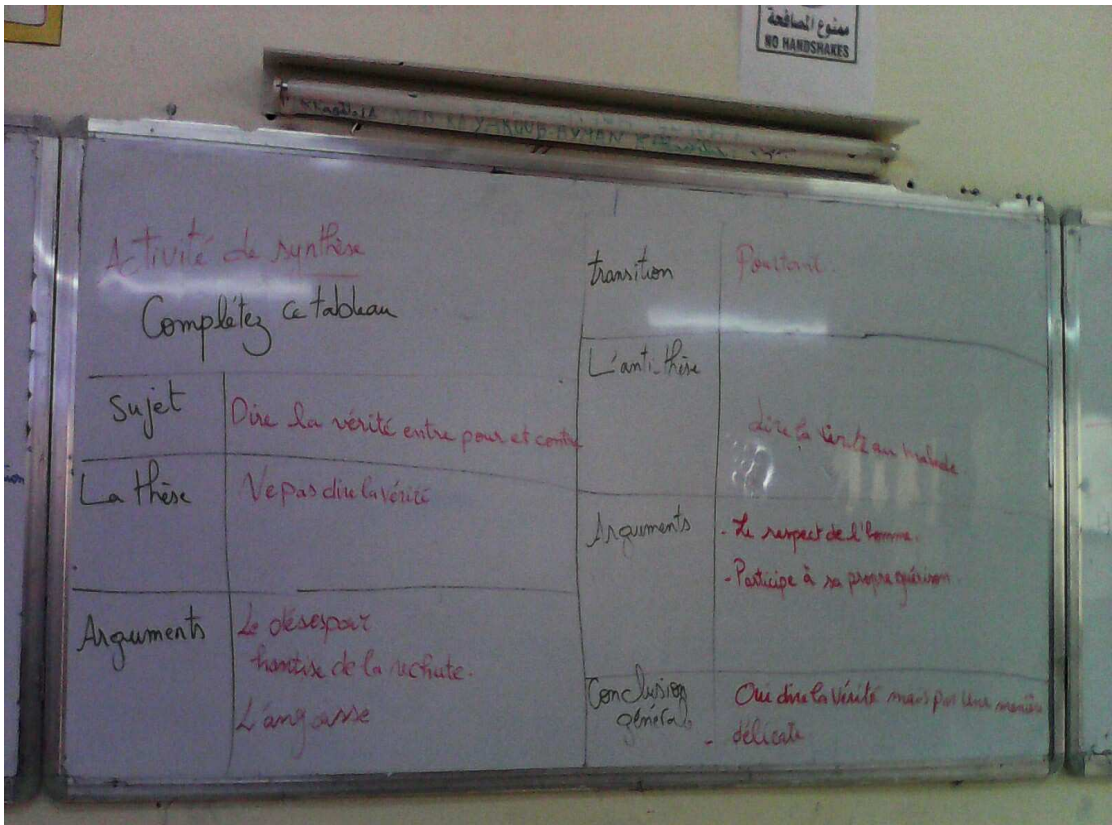 ممنوع المصافحة
NO HANDSHAKES
YAKOUB AYMAN
Activité de synthèse
Complétez ce tableau
Sujet
Dire la vérité entre pour et contre
La thèse
Ne pas dire la vérité
Arguments
Le désespoir
hantise de la rechute.
L'angoisse
transition
Pourtant
L'anti-thèse
dire la vérité au malade.
Arguments
- Le respect de l'homme.
- Participe à sa propre guérison.
Conclusion
général
Oui dire la vérité mais par une manière
délicate